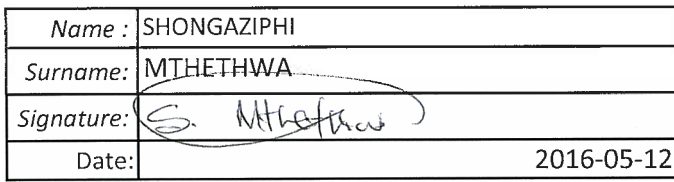 Name : SHONGAZIPHI
Surname: MTHETHWA
Signature: S. Mthethwa
Date: 2016-05-12